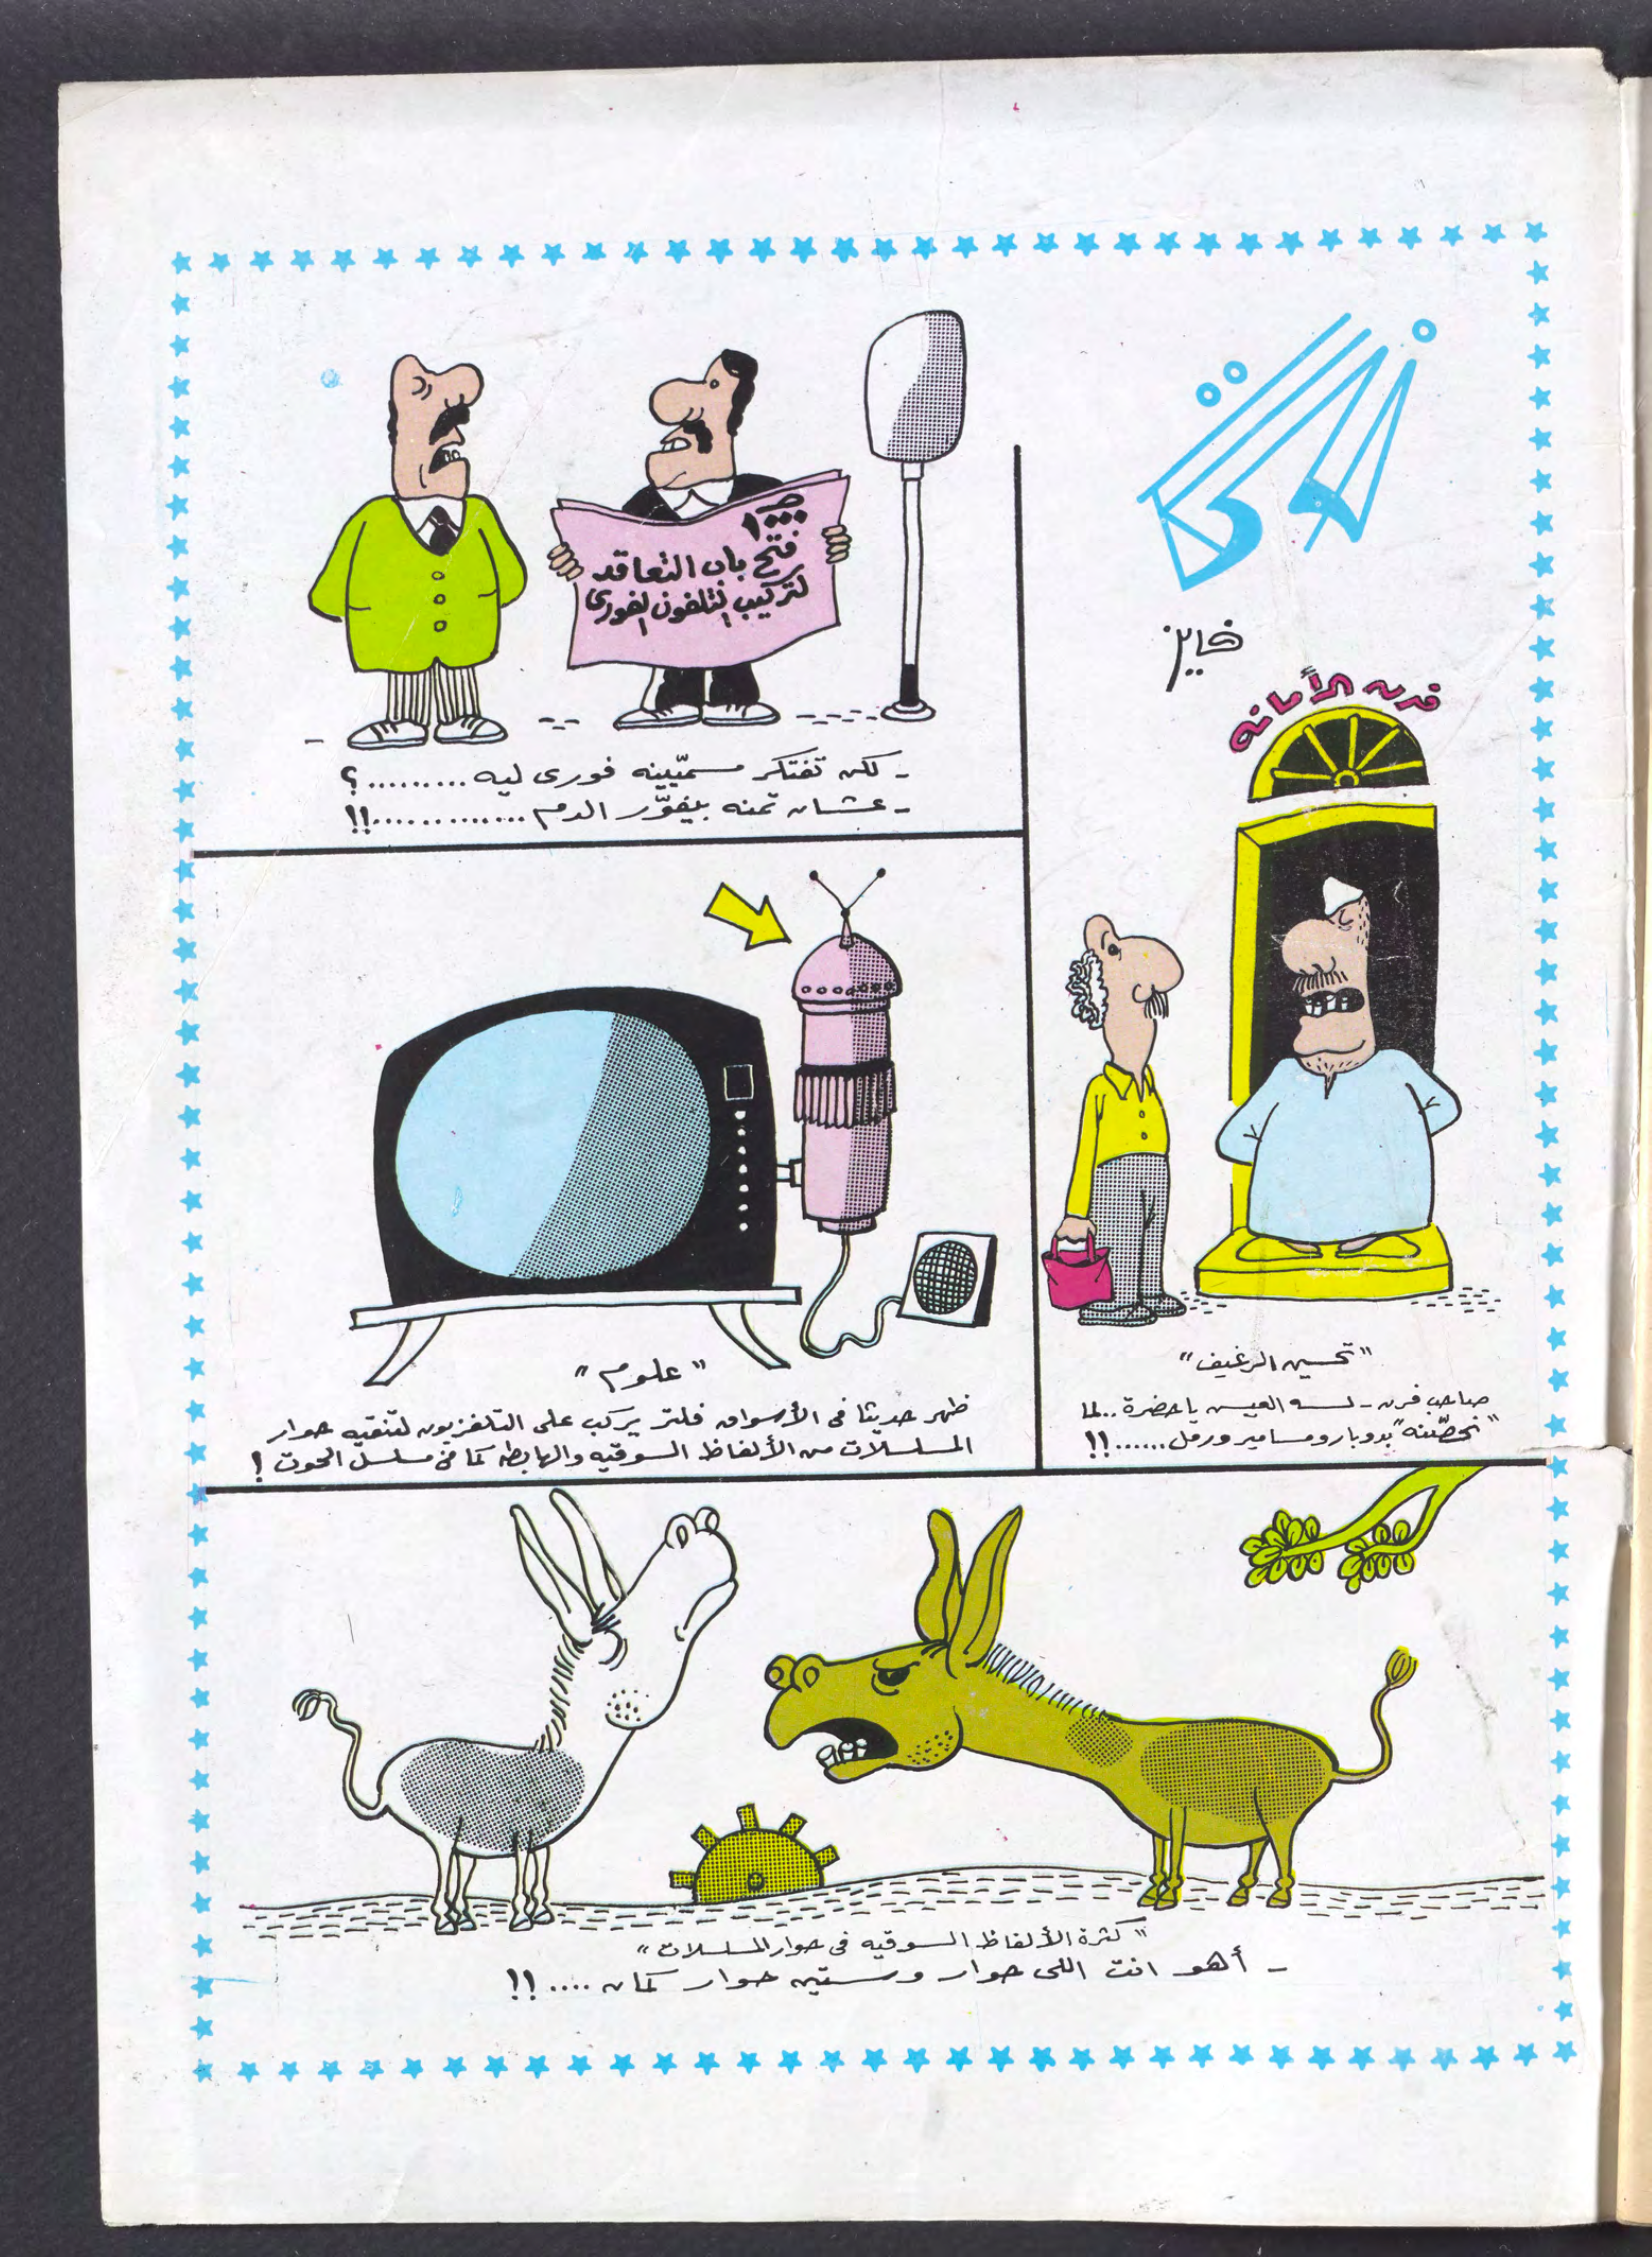 فايز
فرن الأمانه
"تحسين الرغيف"
صاحب فرن - لسه العيش يا حضرة.. لما
"نحصّنه" بدوبار ومسامير ورمل......!!
ص ١٠٠٠
فتح باب التعاقد
لتركيب التلفون الفورى
- لكن تفتكر مسمّيينه فورى ليه .........؟
- عشان تمنه بيفوّر الدم .............!!
"علوم"
ظهر حديثا فى الأسواق فلتر يركب على التلفزيون لتنقيه حوار
المسلسلات من الألفاظ السوقيه والهابطه كما فى مسلسل الحوت !
"كثرة الألفاظ السوقيه فى حوار المسلسلات"
- أهو انت اللى حوار وستين حوار كمان ....!!